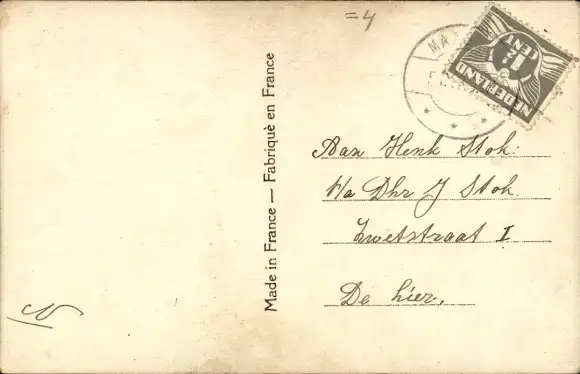 =4
MA
NEDERLAND
1½ CENT
Made in France — Fabriqué en France
Aan Henk Stok.
p/a Dhr J Stok.
Zwetstraat I
De hier,